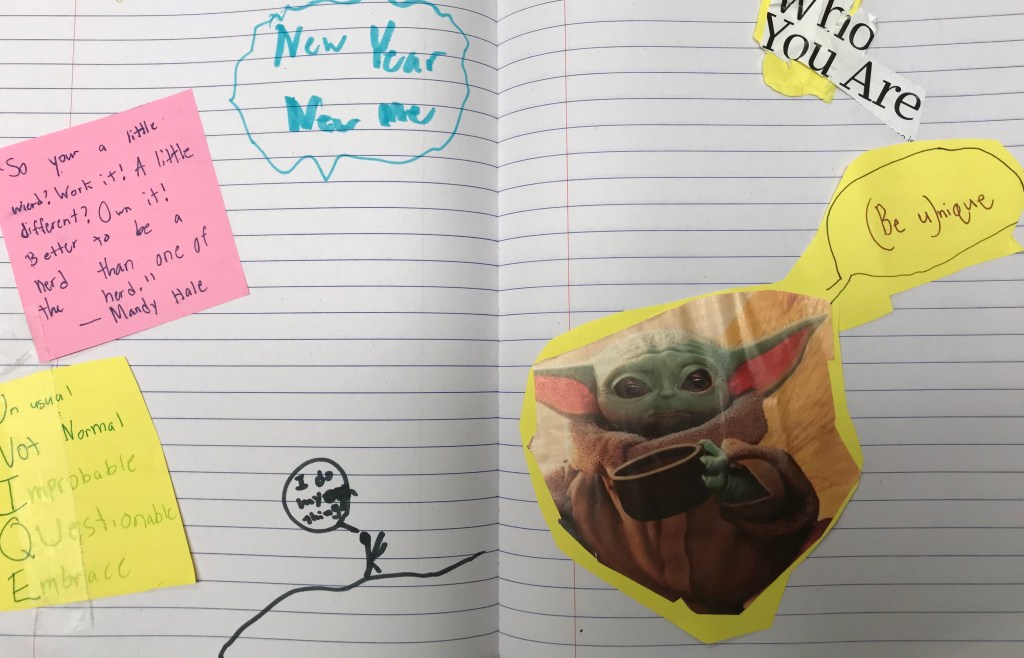 New Year
New me
"So your a little
wierd? Work it! A little
different? Own it!
Better to be a
nerd than one of
the herd."
— Mandy Hale
Unusual
Not Normal
Improbable
QUestionable
Embrace
I do
my
thing
Who
You Are
(Be u)nique